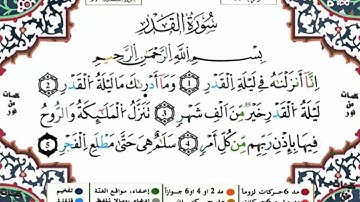 سُورَةُ الْقَدْرِ
بِسْمِ اللَّهِ الرَّحْمَٰنِ الرَّحِيمِ
إِنَّا أَنزَلْنَاهُ فِي لَيْلَةِ الْقَدْرِ ① وَمَا أَدْرَاكَ مَا لَيْلَةُ الْقَدْرِ ②
لَيْلَةُ الْقَدْرِ خَيْرٌ مِّنْ أَلْفِ شَهْرٍ ③ تَنَزَّلُ الْمَلَائِكَةُ وَالرُّوحُ
فِيهَا بِإِذْنِ رَبِّهِم مِّن كُلِّ أَمْرٍ ④ سَلَامٌ هِيَ حَتَّىٰ مَطْلَعِ الْفَجْرِ ⑤
كلمات من نور
كلمات من نور
مد 6 حركات لزوما
مد 2 أو 4 أو 6 جوازا
إخفاء، ومواقع الغنة
تفخيم
قلقلة